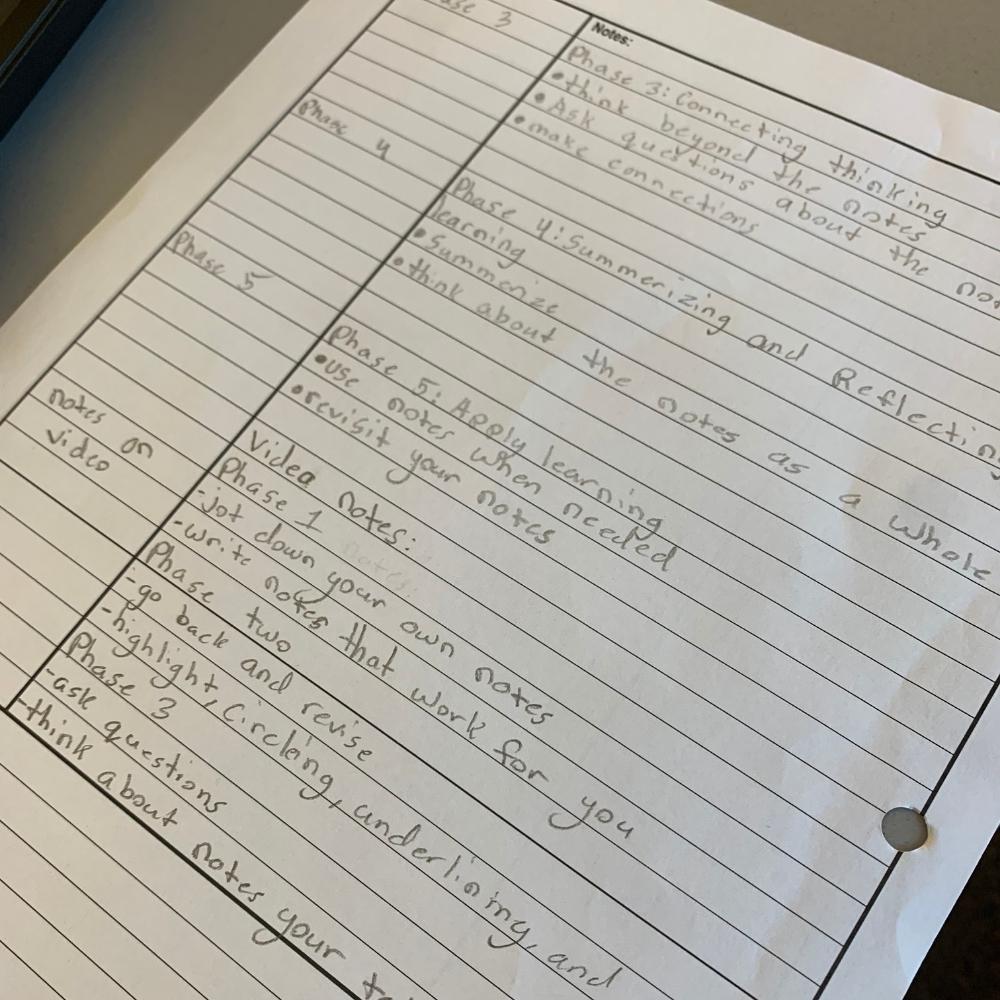 3
Notes:
Phase 3: Connecting thinking
• think beyond the notes
• Ask questions about the
• make connections
Phase 4
Phase 4: Summerizing and Reflecting
learning
• Summerize
• think about the notes as a whole
Phase 5
Phase 5: Apply learning
• use notes when needed
• revisit your notes
notes on
video
Video notes:
Phase 1
-jot down your own notes
-write notes that work for you
Phase two
-go back and revise
-highlight, Circleing, underlining, and
Phase 3
-ask questions
-think about notes your